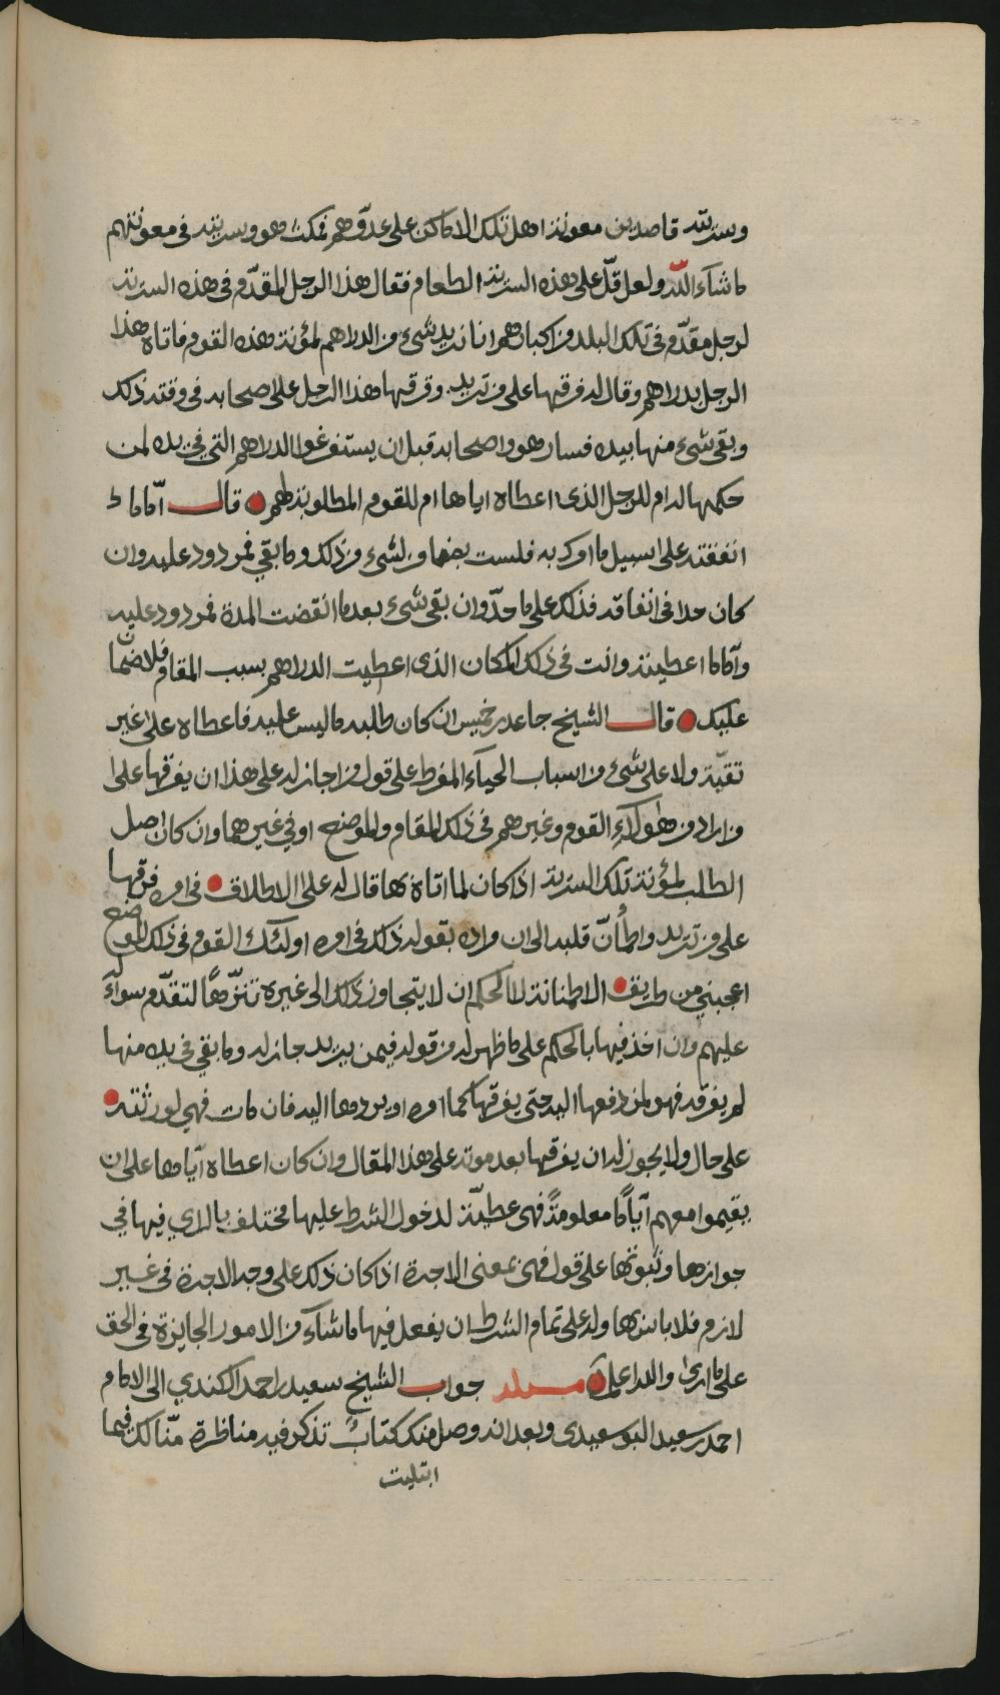 وسريته قاصدين معونة اهل تلك الاماكن على عدوهم فمكث هو وسريته في معونتهم
ما شآء اللّه ولعل قلّ على هذه السرية الطعام فقال هذا الرجل المقدّم في هذه السرية
لرجل مقدّم في تلك البلد من اكبارهم انا نريد شيء من الدراهم لمؤنة هذه القوم فاتاه هذا
الرجل بدراهم وقال له فرقها على من تريد وفرقها هذا الرجل على اصحابه في وقته ذلك
وبقي شيء منها بيده فسار هو واصحابه قبل ان يستفرغوا الدراهم التي في يده لمن
حكمها له ام للرجل الذي اعطاه اياها ام للقوم المطلوبة لهم قال اما ما
انفقته على سبيل ما امرك به فلست بضامن لشيء من ذلك وما بقي فمردود عليه وان
كان حدا في انفاقه فذلك على ما حدّ وان بقي شيء بعد ما انقضت المدة فمردود عليه
وأما ما اعطيته وانت في ذلك المكان الذي اعطيت الدراهم بسبب المقام فلا ضمان
عليك قال الشيخ جاعد بن خميس ان كان طلبه ما ليس عليه فاعطاه على غير
تقيّة ولا على شيء من اسباب الحيآء المفرط على قول من اجاز له على هذا ان يفرقها على
من اراد من هؤلآء القوم وغيرهم في ذلك المقام والموضع او في غيرهما وان كان اصل
الطلب لمؤنة تلك السرية اذا كان لما اتاه بها قال له على الاطلاق في امره فرقها
على من تريد واطمأنّ قلبه الى ان مراده بقوله ذلك في امره اولئك القوم في ذلك الموضع
اعجبني من طريق الاطمنانة لا الحكم ان لا يتجاوز ذلك الى غيره تنزّهًا لتقدّم سوآله
عليهم وان اخذ فيها بالحكم على ما ظهر له من قوله فيمن يريد جاز له وما بقي في يده منها
لم يفرقه فهو لمن دفعها اليه حتى يفرقها كما امره او يردها اليه فان مات فهي لورثته
على حال ولا يجوز له ان يفرقها بعد موته على هذا المقال وان كان اعطاه أياها على ان
يقيموا معهم أيّامًا معلومةً فهي عطيّة لدخول الشرط عليها مختلف بالراي فيها في
جوازها وثبوتها على قول فهي بمعنى الاجرة اذا كان ذلك على وجه الاجرة في غير
لازم فلا باس بها وله على تمام الشرط ان يفعل فيها ما شآء من الامور الجايزة في الحق
على ما ارى والله اعلم مسئلة جواب الشيخ سعيد بن احمد الكندي الى الامام
احمد بن سعيد البوسعيدي وبعد انه وصل منك كتابٌ تذكر فيه مناظرة منّا لك فيما
ابتليت